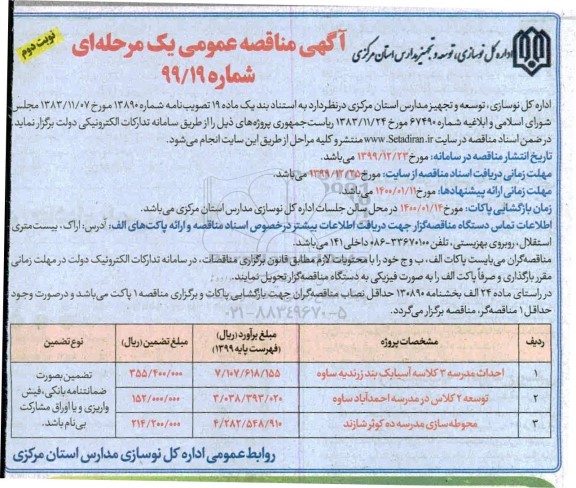 نوبت دوم
آگهی مناقصه عمومی یک مرحله‌ای
شماره ۹۹/۱۹
اداره کل نوسازی، توسعه و تجهیز مدارس استان مرکزی
اداره کل نوسازی، توسعه و تجهیز مدارس استان مرکزی درنظر دارد به استناد بند یک ماده ۱۹ تصویب‌نامه شماره ۱۳۸۹۰ مورخ ۱۳۸۳/۱۱/۰۷ مجلس
شورای اسلامی و ابلاغیه شماره ۶۷۴۹۰ مورخ ۱۳۸۳/۱۱/۲۴ ریاست‌جمهوری پروژه‌های ذیل را از طریق سامانه تدارکات الکترونیکی دولت برگزار نماید
در ضمن اسناد مناقصه در سایت www.Setadiran.ir منتشر و کلیه مراحل از طریق این سایت انجام می‌شود.
تاریخ انتشار مناقصه در سامانه: مورخ ۱۳۹۹/۱۲/۲۳ می‌باشد.
مهلت زمانی دریافت اسناد مناقصه از سایت: مورخ ۱۳۹۹/۱۲/۲۵ می‌باشد.
مهلت زمانی ارائه پیشنهادها: مورخ ۱۴۰۰/۰۱/۱۱ می‌باشد.
زمان بازگشایی پاکات: مورخ ۱۴۰۰/۰۱/۱۴ در محل سالن جلسات اداره کل نوسازی مدارس استان مرکزی می‌باشد.
اطلاعات تماس دستگاه مناقصه‌گزار جهت دریافت اطلاعات بیشتر درخصوص اسناد مناقصه و ارائه پاکت‌های الف: آدرس: اراک، بیست‌متری
استقلال، روبروی بهزیستی، تلفن ۳۳۶۷۰۱۰۰-۰۸۶ داخلی ۱۴۱ می‌باشد.
مناقصه‌گران می‌بایست پاکات الف، ب و ج خود را با محتویات لازم مطابق قانون برگزاری مناقصات، در سامانه تدارکات الکترونیک دولت در مهلت زمانی
مقرر بارگذاری و صرفاً پاکت الف را به صورت فیزیکی به دستگاه مناقصه‌گزار تحویل نمایند.
در راستای ماده ۲۴ الف بخشنامه ۱۳۰۸۹۰ حداقل نصاب مناقصه‌گران جهت بازگشایی پاکات و برگزاری مناقصه ۱ پاکت می‌باشد و درصورت وجود
حداقل ۱ مناقصه‌گر، مناقصه برگزار می‌گردد.
۰۲۱-۸۸۳۴۹۶۷۰-۵
ردیف مشخصات پروژه مبلغ برآورد (ریال) (فهرست پایه ۱۳۹۹) مبلغ تضمین (ریال) نوع تضمین
۱ احداث مدرسه ۳ کلاسه آسیابک بند زرندیه ساوه ۷/۱۰۷/۶۱۸/۱۵۵ ۳۵۵/۴۰۰/۰۰۰
۲ توسعه ۲ کلاس در مدرسه احمدآباد ساوه ۳/۰۳۸/۳۹۳/۰۲۰ ۱۵۲/۰۰۰/۰۰۰
۳ محوطه‌سازی مدرسه ده کوثر شازند ۴/۲۸۲/۵۴۸/۹۱۰ ۲۱۴/۲۰۰/۰۰۰
تضمین بصورت
ضمانتنامه بانکی، فیش
واریزی و یا اوراق مشارکت
بی‌نام باشد.
روابط عمومی اداره کل نوسازی مدارس استان مرکزی